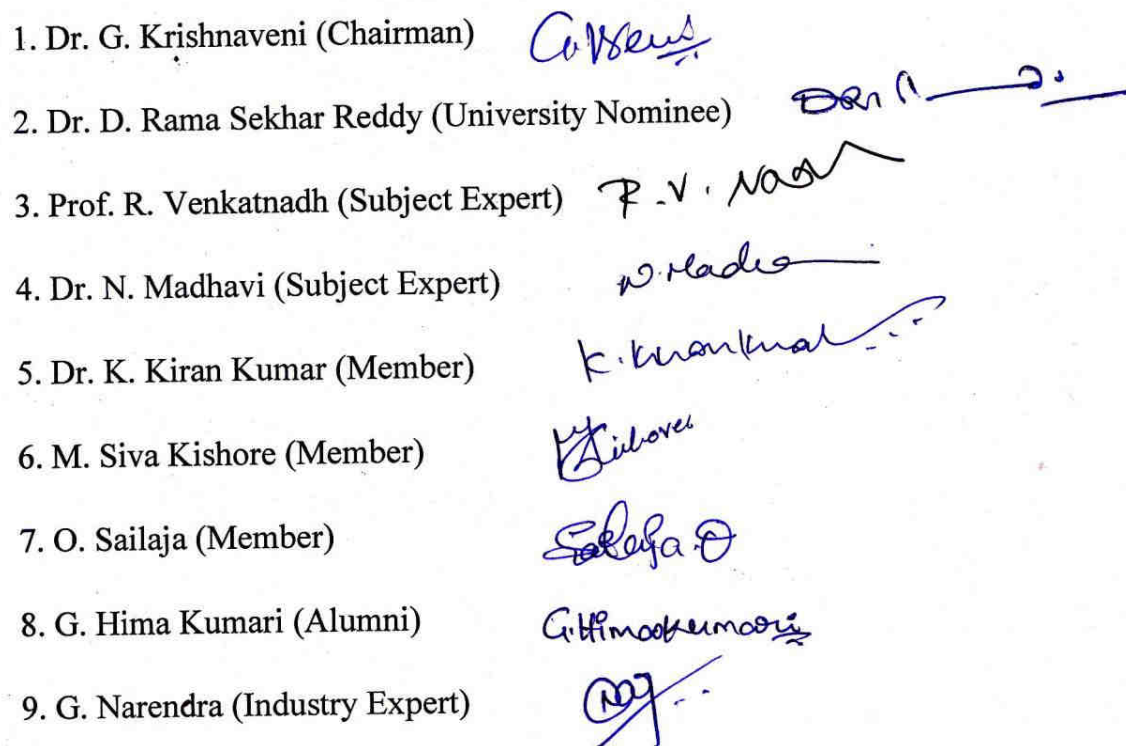 1. Dr. G. Krishnaveni (Chairman)
2. Dr. D. Rama Sekhar Reddy (University Nominee)
3. Prof. R. Venkatnadh (Subject Expert) R.V. Nadh
4. Dr. N. Madhavi (Subject Expert) N. Madhavi
5. Dr. K. Kiran Kumar (Member) K. Kiran Kumar
6. M. Siva Kishore (Member)
7. O. Sailaja (Member) Sailaja. O
8. G. Hima Kumari (Alumni) G. Hima Kumari
9. G. Narendra (Industry Expert)